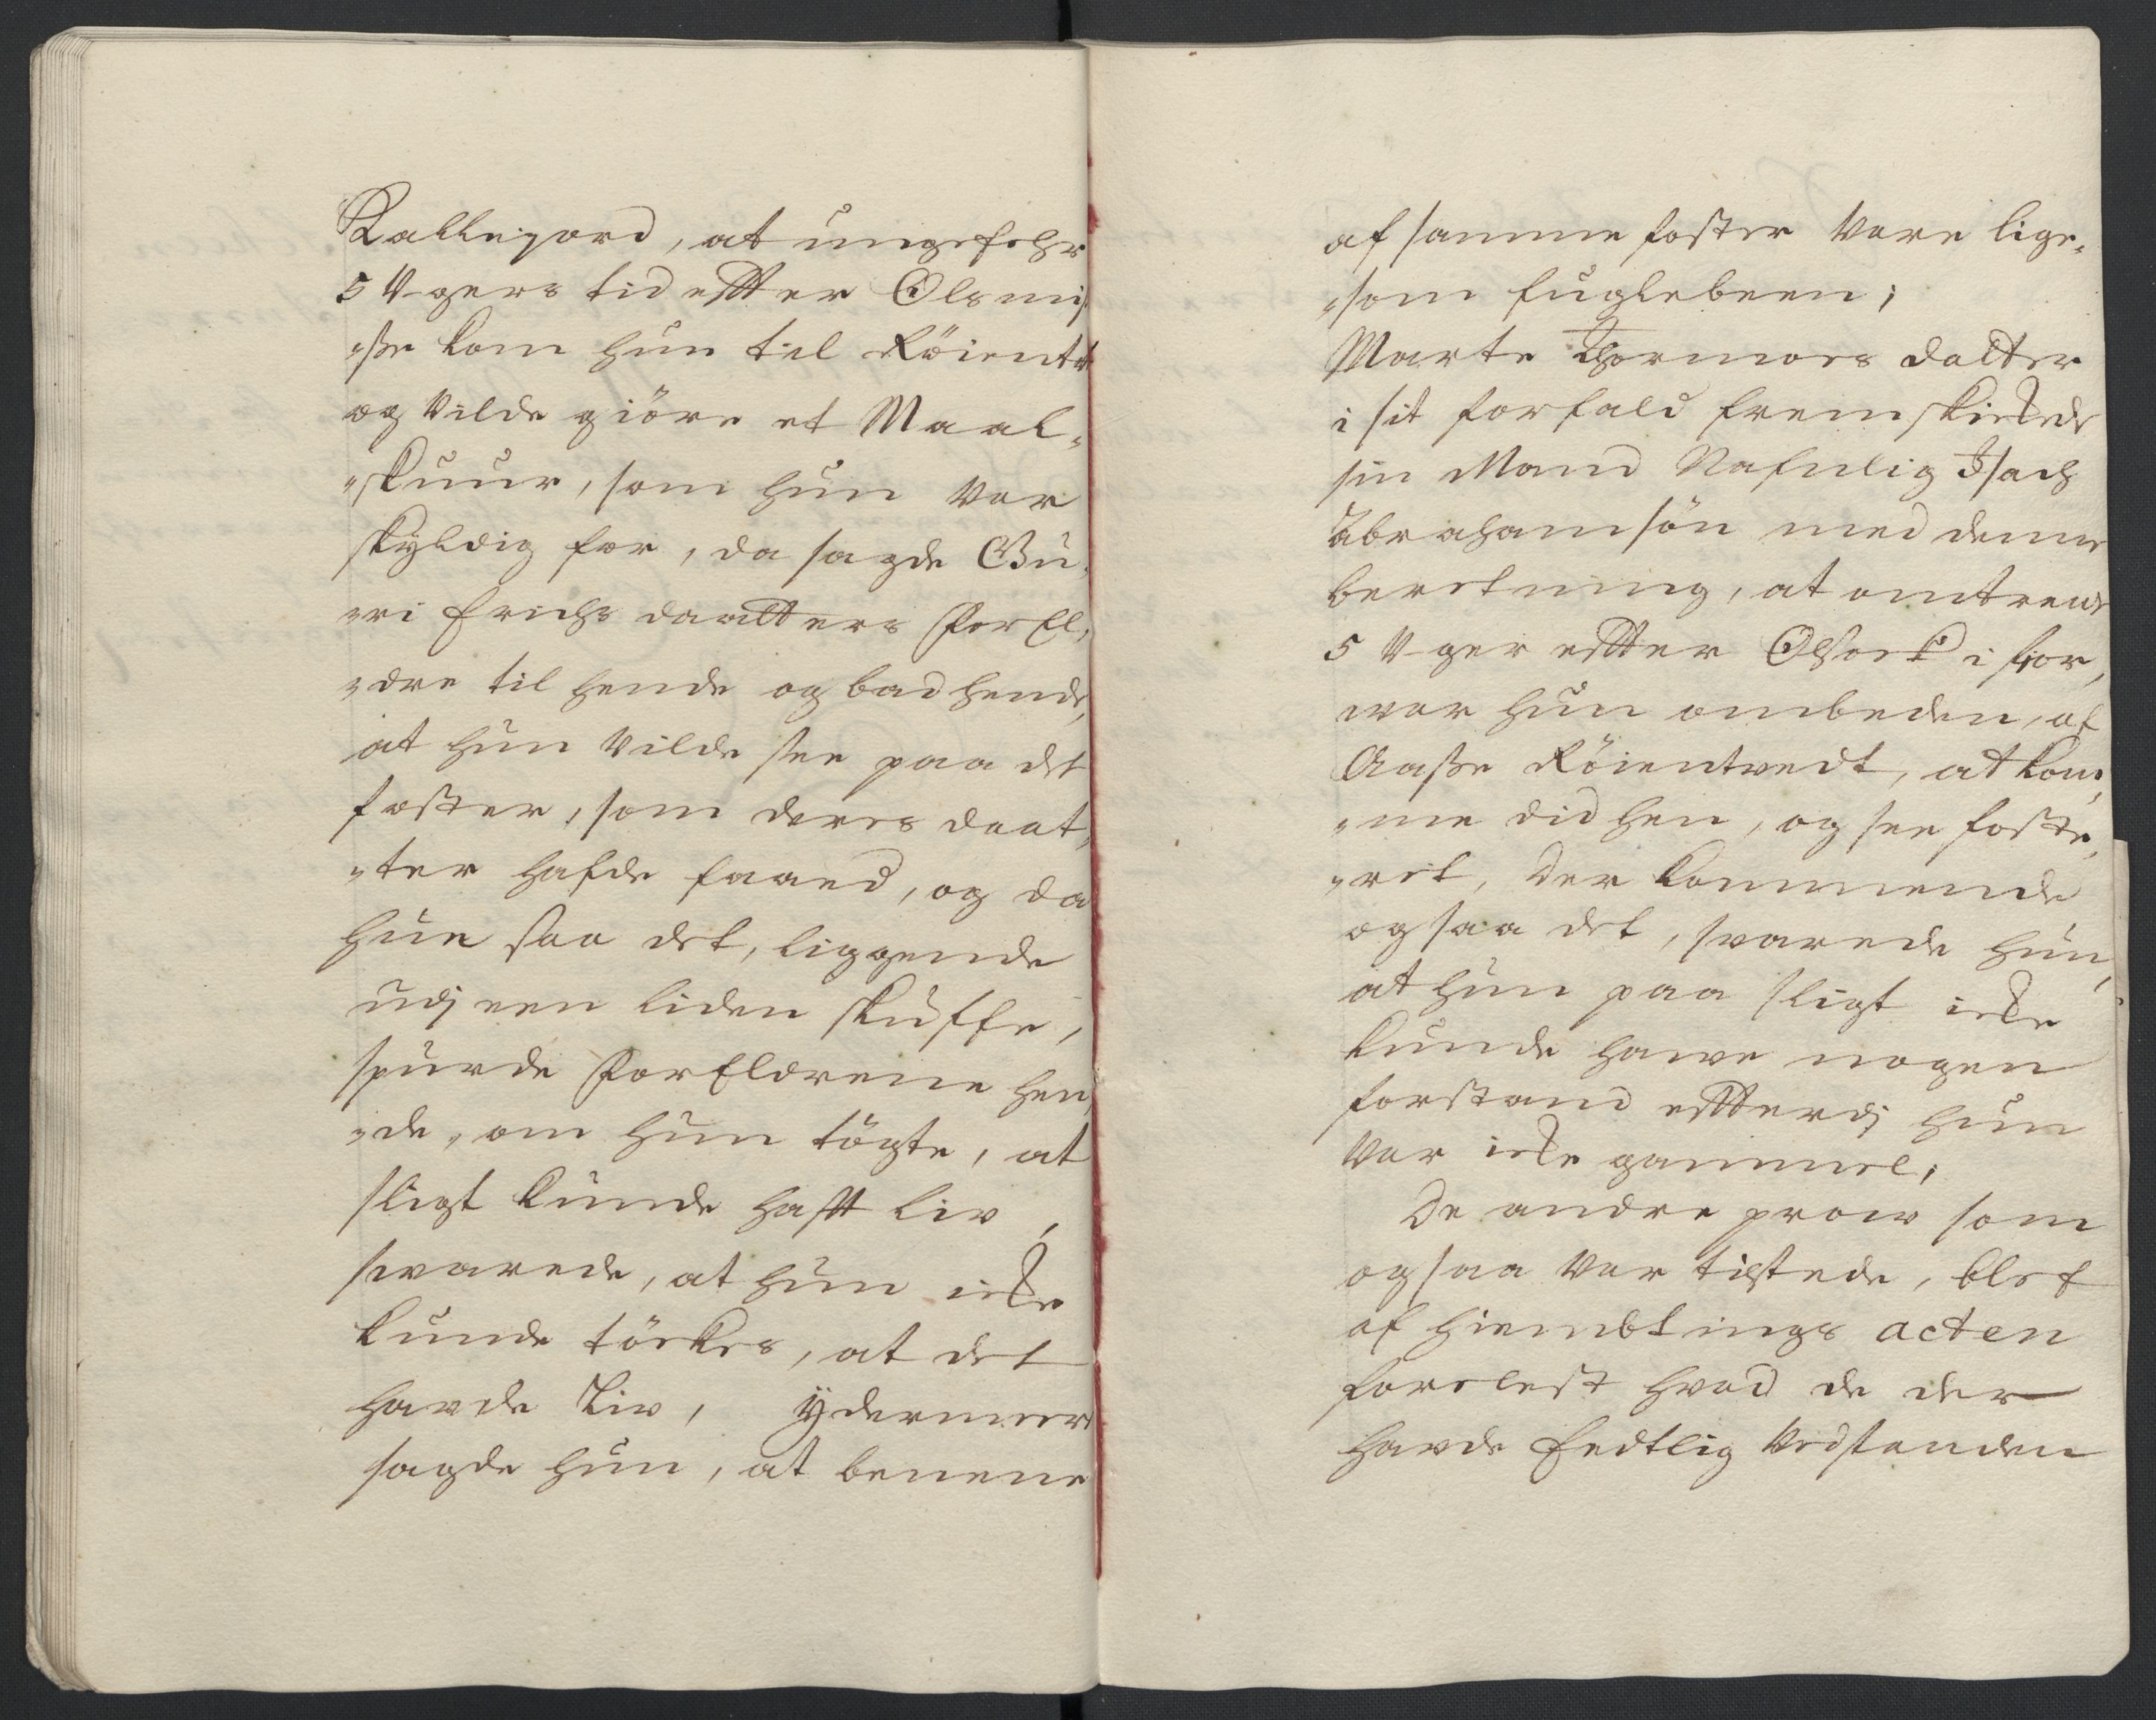 Kallejord, at ungefehr
5 Ugers tid efter Olsmi¸
„sse kom hun til Röientv
og Vilde giöre et Maal¸
„skuur, som hun Var
skyldig for, da sagde Gu¸
„ri Erichs daatters ForEl¸
„dre til hende og bad hende,
at hun Vilde see paa det
foster, som deres daat¸
„ter hafde faaed, og da
hun saa det, liggende
udj een liden skuffe,
spurde ForEldrene hen¸
„de, om hun tögte, at
sligt kunde hafft Liv,
svarede, at hun icke
kunde töckes, at det
havde Liv, ÿdermeere
sagde hun, at benene
af samme foster Vare lige¸
„som fuglebeen;
Marte Thormoes datter
i sit forfald fremskickede
sin Mand Nafnlig Isach
Abrahamsön med denne
beretning, at omtrend
5 Uger efter Olsock i fior,
war hun ombeden, af
Aasse Röientvedt, at kom¸
„me did hen, og see foste¸
„ret, der kommende
og saa det, svarede hun,
at hun paa sligt icke
kunde have nogen
forstand efterdj hun
Var icke gammel,
De andre prov som
ogsaa Var tilstede, blef
af hiembtings acten
forelest hvad de der
havde Eedtlig Vedstanden